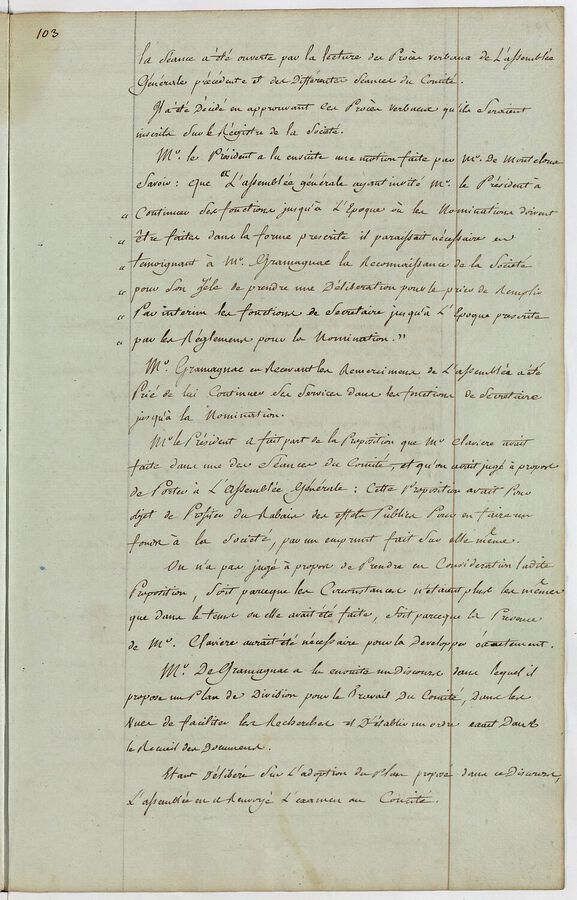 103
la Séance a été ouverte par la lecture des Procès verbaux de L'assemblée
Générale précédente et des Différentes Séances du Comité.
Il a été Décidé en approuvant ces Procès verbaux qu'ils Seroient
inscrits Sur le Régistre de la Société.
Mr. le Président a lu ensuite une motion faite par Mr. De
Savoir : que L'assemblée générale ayant invité Mr. le Président à
" Continuer Ses fonctions jusqu'à L'Epoque où les Nominations doivent
" être faites dans la forme prescrite il paraissait nécessaire en
" temoignant à Mr. Gramagnac la Reconnaissance de la Société
" pour Son Zèle de prendre une Déliberation pour le prier de Remplir
" Par interim les fonctions de Secretaire jusqu'à L'Epoque prescrite
" par les Réglemens pour la Nomination."
Mr. Gramagnac en Recevant les Remercimens de L'assemblée a été
Prié de lui Continuer Ses Services dans les fonctions de Secretaire
jusqu'à la Nomination.
Mr le Président a fait part de la Proposition que Mr Claviere avait
faite dans une des Séances du Comité, et qu'on avait jugé à propos
de Porter à L'Assemblée Générale : Cette Proposition avait Pour
objet de Profiter du Rabais des effets Publics Pour en faire un
fonds à la Societé, par un emprunt fait Sur elle même.
On n'a pas jugé à propos de Prendre en Considération ladite
Proposition, Soit parceque les Circonstances n'étaient plus les mêmes
que dans le tems ou elle avait été faite, Soit parceque la Presence
de Mr. Claviere aurait été nécessaire pour la Developper exactement.
Mr. De Gramagnac a lu ensuite un Discours dans lequel il
propose un Plan de Division pour le Travail Du Comité, Dans les
Vues de faciliter les Recherches et D'établir un ordre exact Dans
le Recueil des Documens.
Etant Délibéré Sur L'adoption du Plan proposé dans ce Discours,
L'assemblée en a Renvoyé L'examen au Comité.